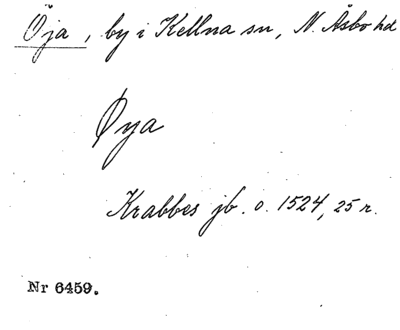 Öja, by i Kellna sn, N. Åsbo hd
Øya
Krabbes jb. o. 1524, 25 r.
Nr 6459.